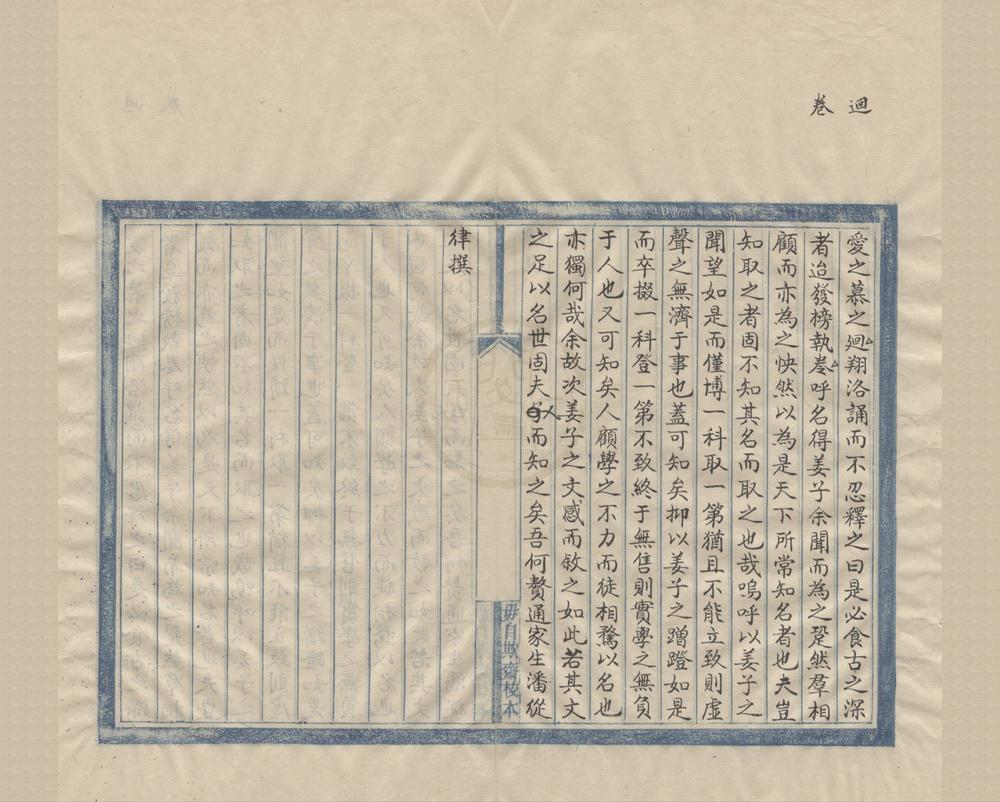 迴
卷
愛之慕之廻翔洛誦而不忍釋之曰是必食古之深
者迨發榜執卷呼名得姜子余聞而為之跫然羣相
顧而亦為之怏然以為是天下所常知名者也夫豈
知取之者固不知其名而取之也哉嗚呼以姜子之
聞望如是而僅博一科取一第猶且不能立致則虛
聲之無濟于事也蓋可知矣抑以姜子之蹭蹬如是
而卒掇一科登一第不致終于無售則實學之無負
于人也又可知矣人顧學之不力而徒相騖以名也
亦獨何哉余故次姜子之文感而敘之如此若其文
之足以名世固夫以而知之矣吾何贅通家生潘從
律撰
毋自欺齋校本